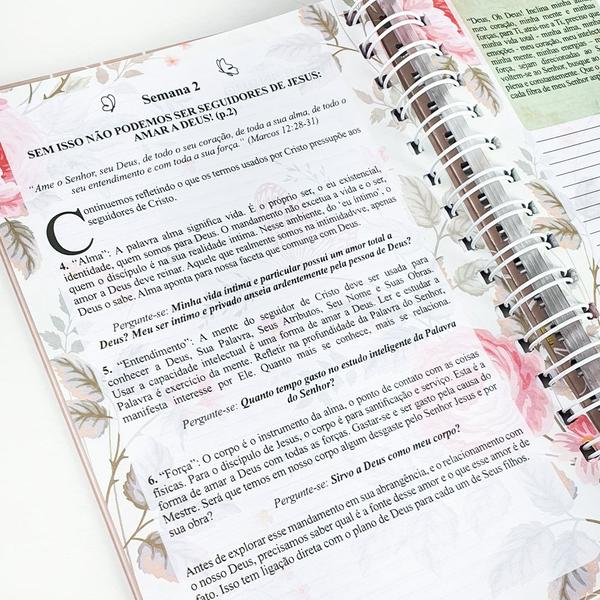 Semana 2
SEM ISSO NÃO PODEMOS SER SEGUIDORES DE JESUS:
AMAR A DEUS! (p.2)
“Ame o Senhor, seu Deus, de todo o seu coração, de toda a sua alma, de todo o
seu entendimento e com toda a sua força.” (Marcos 12:28-31)
Continuemos refletindo o que os termos usados por Cristo pressupõe aos
seguidores de Cristo.
4. “Alma”: A palavra alma significa vida. É o próprio ser, o eu existencial,
identidade, quem somos para Deus. O mandamento não excetua a vida e o ser,
quem o discípulo é na sua realidade interna. Nesse ambiente, do ‘eu íntimo’, o
amor a Deus deve reinar. Aquele que realmente somos na intimidadvve, apenas
Deus o sabe. Alma aponta para nossa faceta que comunga com Deus.
Pergunte-se: Minha vida íntima e particular possui um amor total a
Deus? Meu ser íntimo e privado anseia ardentemente pela pessoa de Deus?
5. “Entendimento”: A mente do seguidor de Cristo deve ser usada para
conhecer a Deus, Sua Palavra, Seus Atributos, Seu Nome e Suas Obras.
Usar a capacidade intelectual é uma forma de amar a Deus. Ler e estudar a
Palavra é exercício da mente. Refletir na profundidade da Palavra do Senhor,
manifesta interesse por Ele. Quanto mais se conhece, mais se relaciona.
Pergunte-se: Quanto tempo gasto no estudo inteligente da Palavra
do Senhor?
6. “Força”: O corpo é o instrumento da alma, o ponto de contato com as coisas
físicas. Para o discípulo de Jesus, o corpo é para santificação e serviço. Esta é a
forma de amar a Deus com todas as forças. Gastar-se e ser gasto pela causa do
Mestre. Será que temos em nosso corpo algum desgaste pelo Senhor Jesus e por
sua obra?
Pergunte-se: Sirvo a Deus como meu corpo?
Antes de explorar esse mandamento em sua abrangência, e o relacionamento com
o nosso Deus, precisamos saber qual é a fonte desse amor e o que esse amor é de
fato. Isso tem ligação direta com o plano de Deus para cada um de Seus filhos.
"Deus, Oh Deus! Inclina minha alma,
meu coração, minha mente e minhas
forças, para Ti, atrai-me a Ti, preciso que
minha vida total - minha alma, minhas
emoções - meu coração, meu intelecto -
minha mente, minhas energias -
força, sejam direcionadas ao
voltem-se ao Senhor, busque ao
plena e constantemente. Que o
cada fibra de meu Senhor